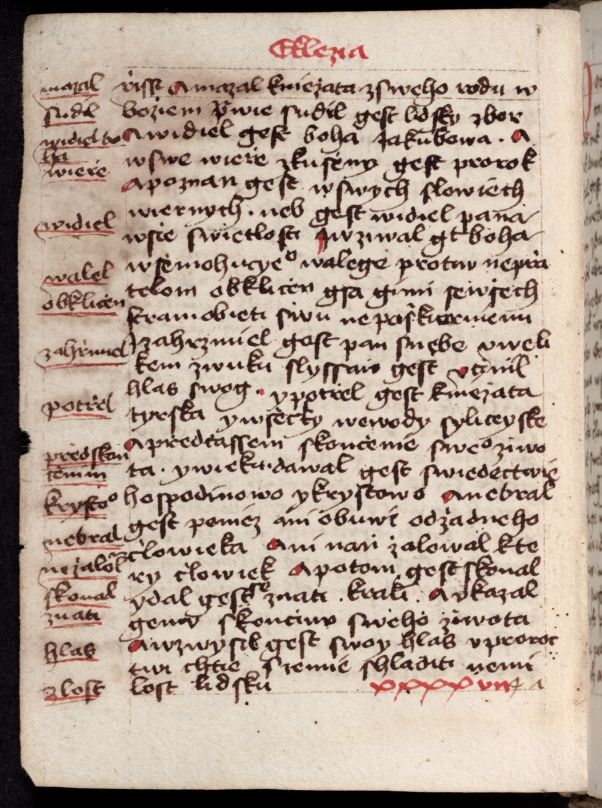 Ekklezia
mazal
sudil
widiel bo
ha
wiere
widiel
walel
obkličen
zahrmiel
potrzel
przedskon
čenim
krysto
nebral
nežaloᵇ
skonal
znati
hlas
zlost
A mazal kniežata zsweho rodu w
božiem prwie sudil gest lidsky zbor
A widiel gest boha Jakubowa. A
wswe wieře zkušeny gest prorok
A poznan gest wswych slowiech
wiernych. neb gest widiel pana
wsie swietlosti A wziwal gt boha
wšemohucyeᵒ walege protiw nepřa
telom obkličen gsa ginni sewšech
stran obieti swu neposkwrnienu
zahrzmiel gest pan snebe vweli
kem zwuku slyssan gest včinil
hlas swog. ypotřel gest kniežata
tyrska ywšecky wewody sylicyske
A predčassem skončenie sweᵒ žiwo
ta. ywieku. dawal gest swiedectwie
hospodinowo ykrystowo A nebral
gest peniez ani obuwi odžadneho
človieka Ani naň žalowal kte
ry človiek A potom gest skonal
ydal gest znati. krali. A vkazal
gemu skončenie sweho žiwota
A wzwysil gest swoy hlas vproroc
twi chtie s zemie shladiti nemi
lost lidsku
xxxxvii a